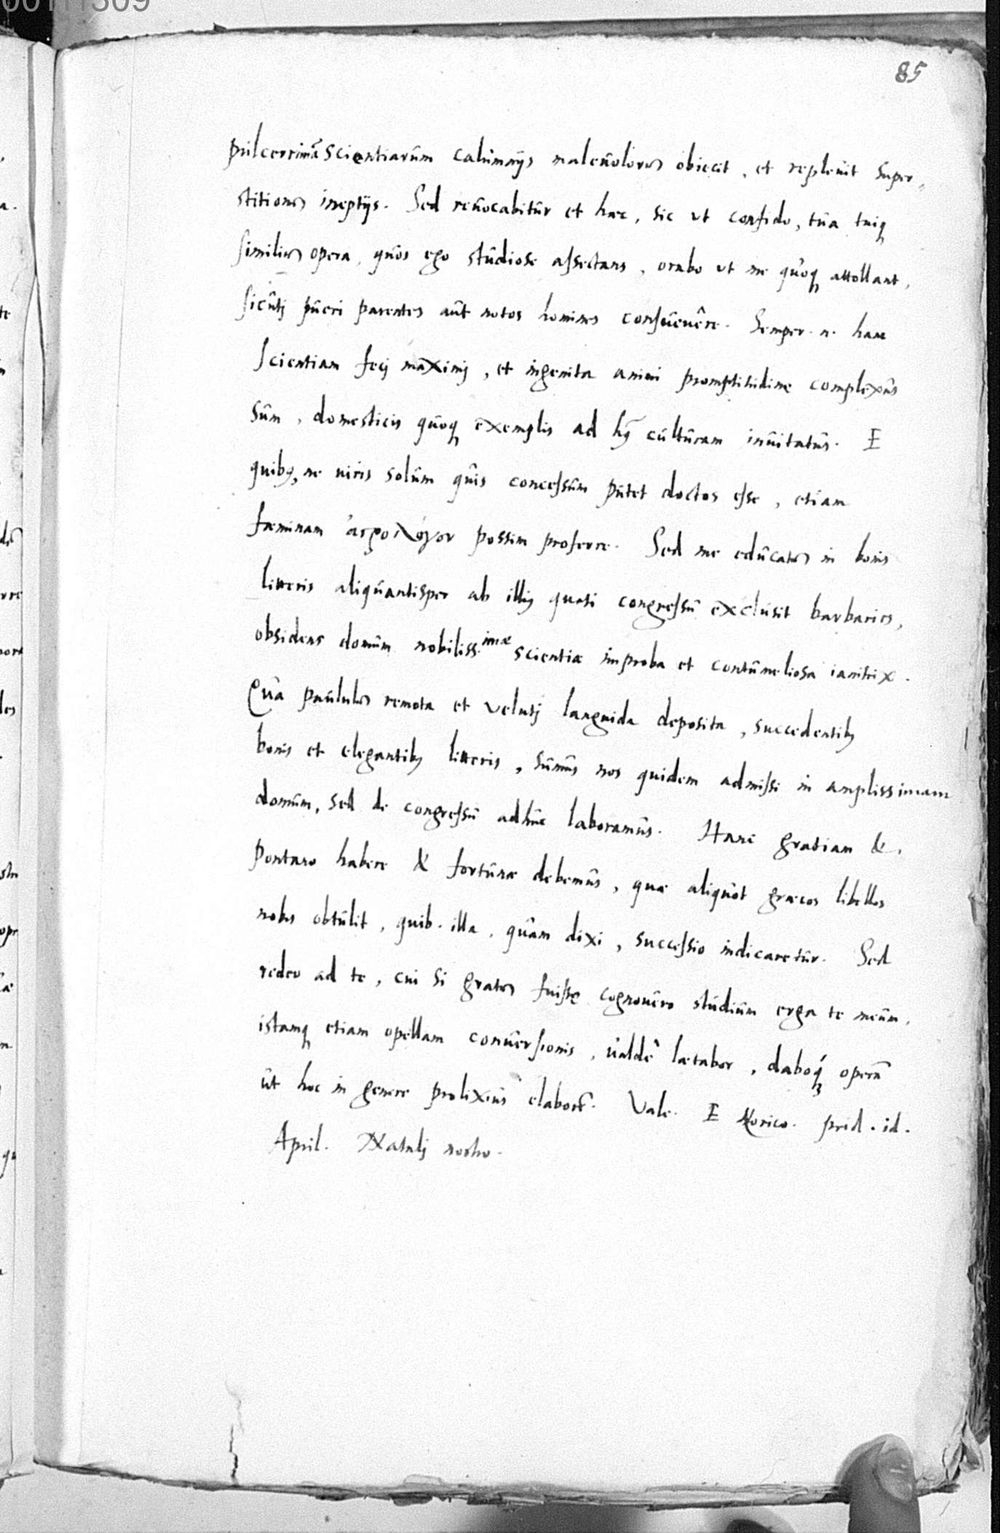 00111309
85
pulcerrimā scientiarum calumnijs maleuolorum obiecit, et repleuit super,
stitionum ineptijs. Sed reuocabitur et haec, sic ut confido, tua tuiq
similium opera, quos ego studiose assectans, orabo ut me quoq attollant,
sicuti pueri parentes aut notos homines consueuere. Semper n. hanc
scientiam feci maximi, et ingenita animi promptitudine complexus
sum, domesticis quoq exemplis ad hᶻ culturam inuitatus. E
quibus, ne uiris solum quis concessum putet doctos esse, etiam
faeminam ἀςρολόγον possim proferre. Sed me educatum in bonis
litteris aliquantisper ab illius quasi congressu exclusit barbaries,
obsidens domum nobilissimae scientiae improba et contumeliosa ianitrix.
Qua paululum remota et veluti languida deposita, succedentibus
bonis et elegantibus litteris, sumus nos quidem admissi in amplissimam
domum, sed de congressu adhuc laboramus. Hanc gratiam &
Pontano habere & fortunae debemus, quae aliquot graecos libellos
nobis obtulit, quib. illa, quam dixi, successio indicaretur. Sed
redeo ad te, cui si gratum fuisse cognouero studium erga te meum,
istamq etiam opellam conuersionis, ualde laetabor, daboq operā
ut hoc in genere prolixius elaborē. Vale. E Norico. prid. id.
April. Natali nostro.